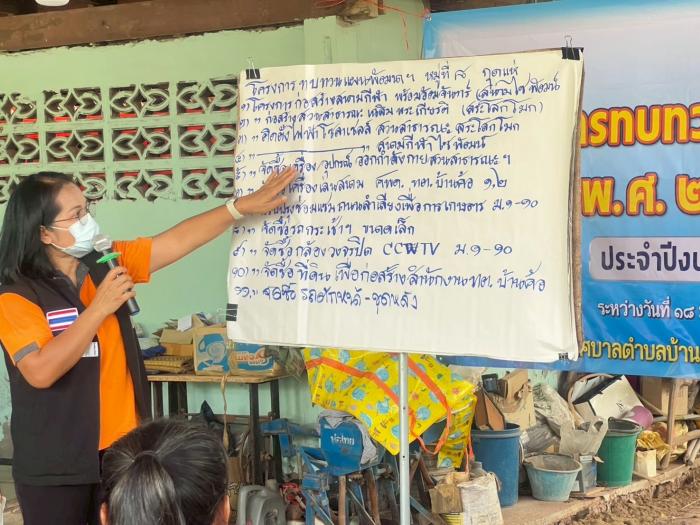 โครงการ ทบทวนแผนพัฒนาฯ หมู่ที่ ๘ กุดแห่
๑) โครงการ ก่อสร้างสนามกีฬา พร้อม
๒) " ก่อสร้างสวนสาธารณะ เฉลิมพระเกียรติ (สระโสกโมก)
๓) " ติดตั้งไฟฟ้าโซล่าเซลล์ สวนสาธารณะ สระโสกโมก
๔) "
๕) " จัดซื้อเครื่อง อุปกรณ์ ออกกำลังกาย สวนสาธารณะฯ
เครื่องเล่นสนาม ศพด. ทต. บ้านค้อ ๑,๒
ปรับปรุงซ่อมแซม ถนนลำเลียงเพื่อการเกษตร ม.๑-๑๐
๘) " จัดซื้อรถกระเช้าฯ ขนาดเล็ก
๙) " จัดซื้อ กล้องวงจรปิด CCTV ม.๑-๑๐
๑๐) " จัดซื้อ ที่ดิน เพื่อก่อสร้างสำนักงาน ทต. บ้านค้อ
๑๑. " จัดซื้อ รถตักหน้า-ขุดหลัง
พ.ศ. ๒
ระหว่างวันที่ ๑๘